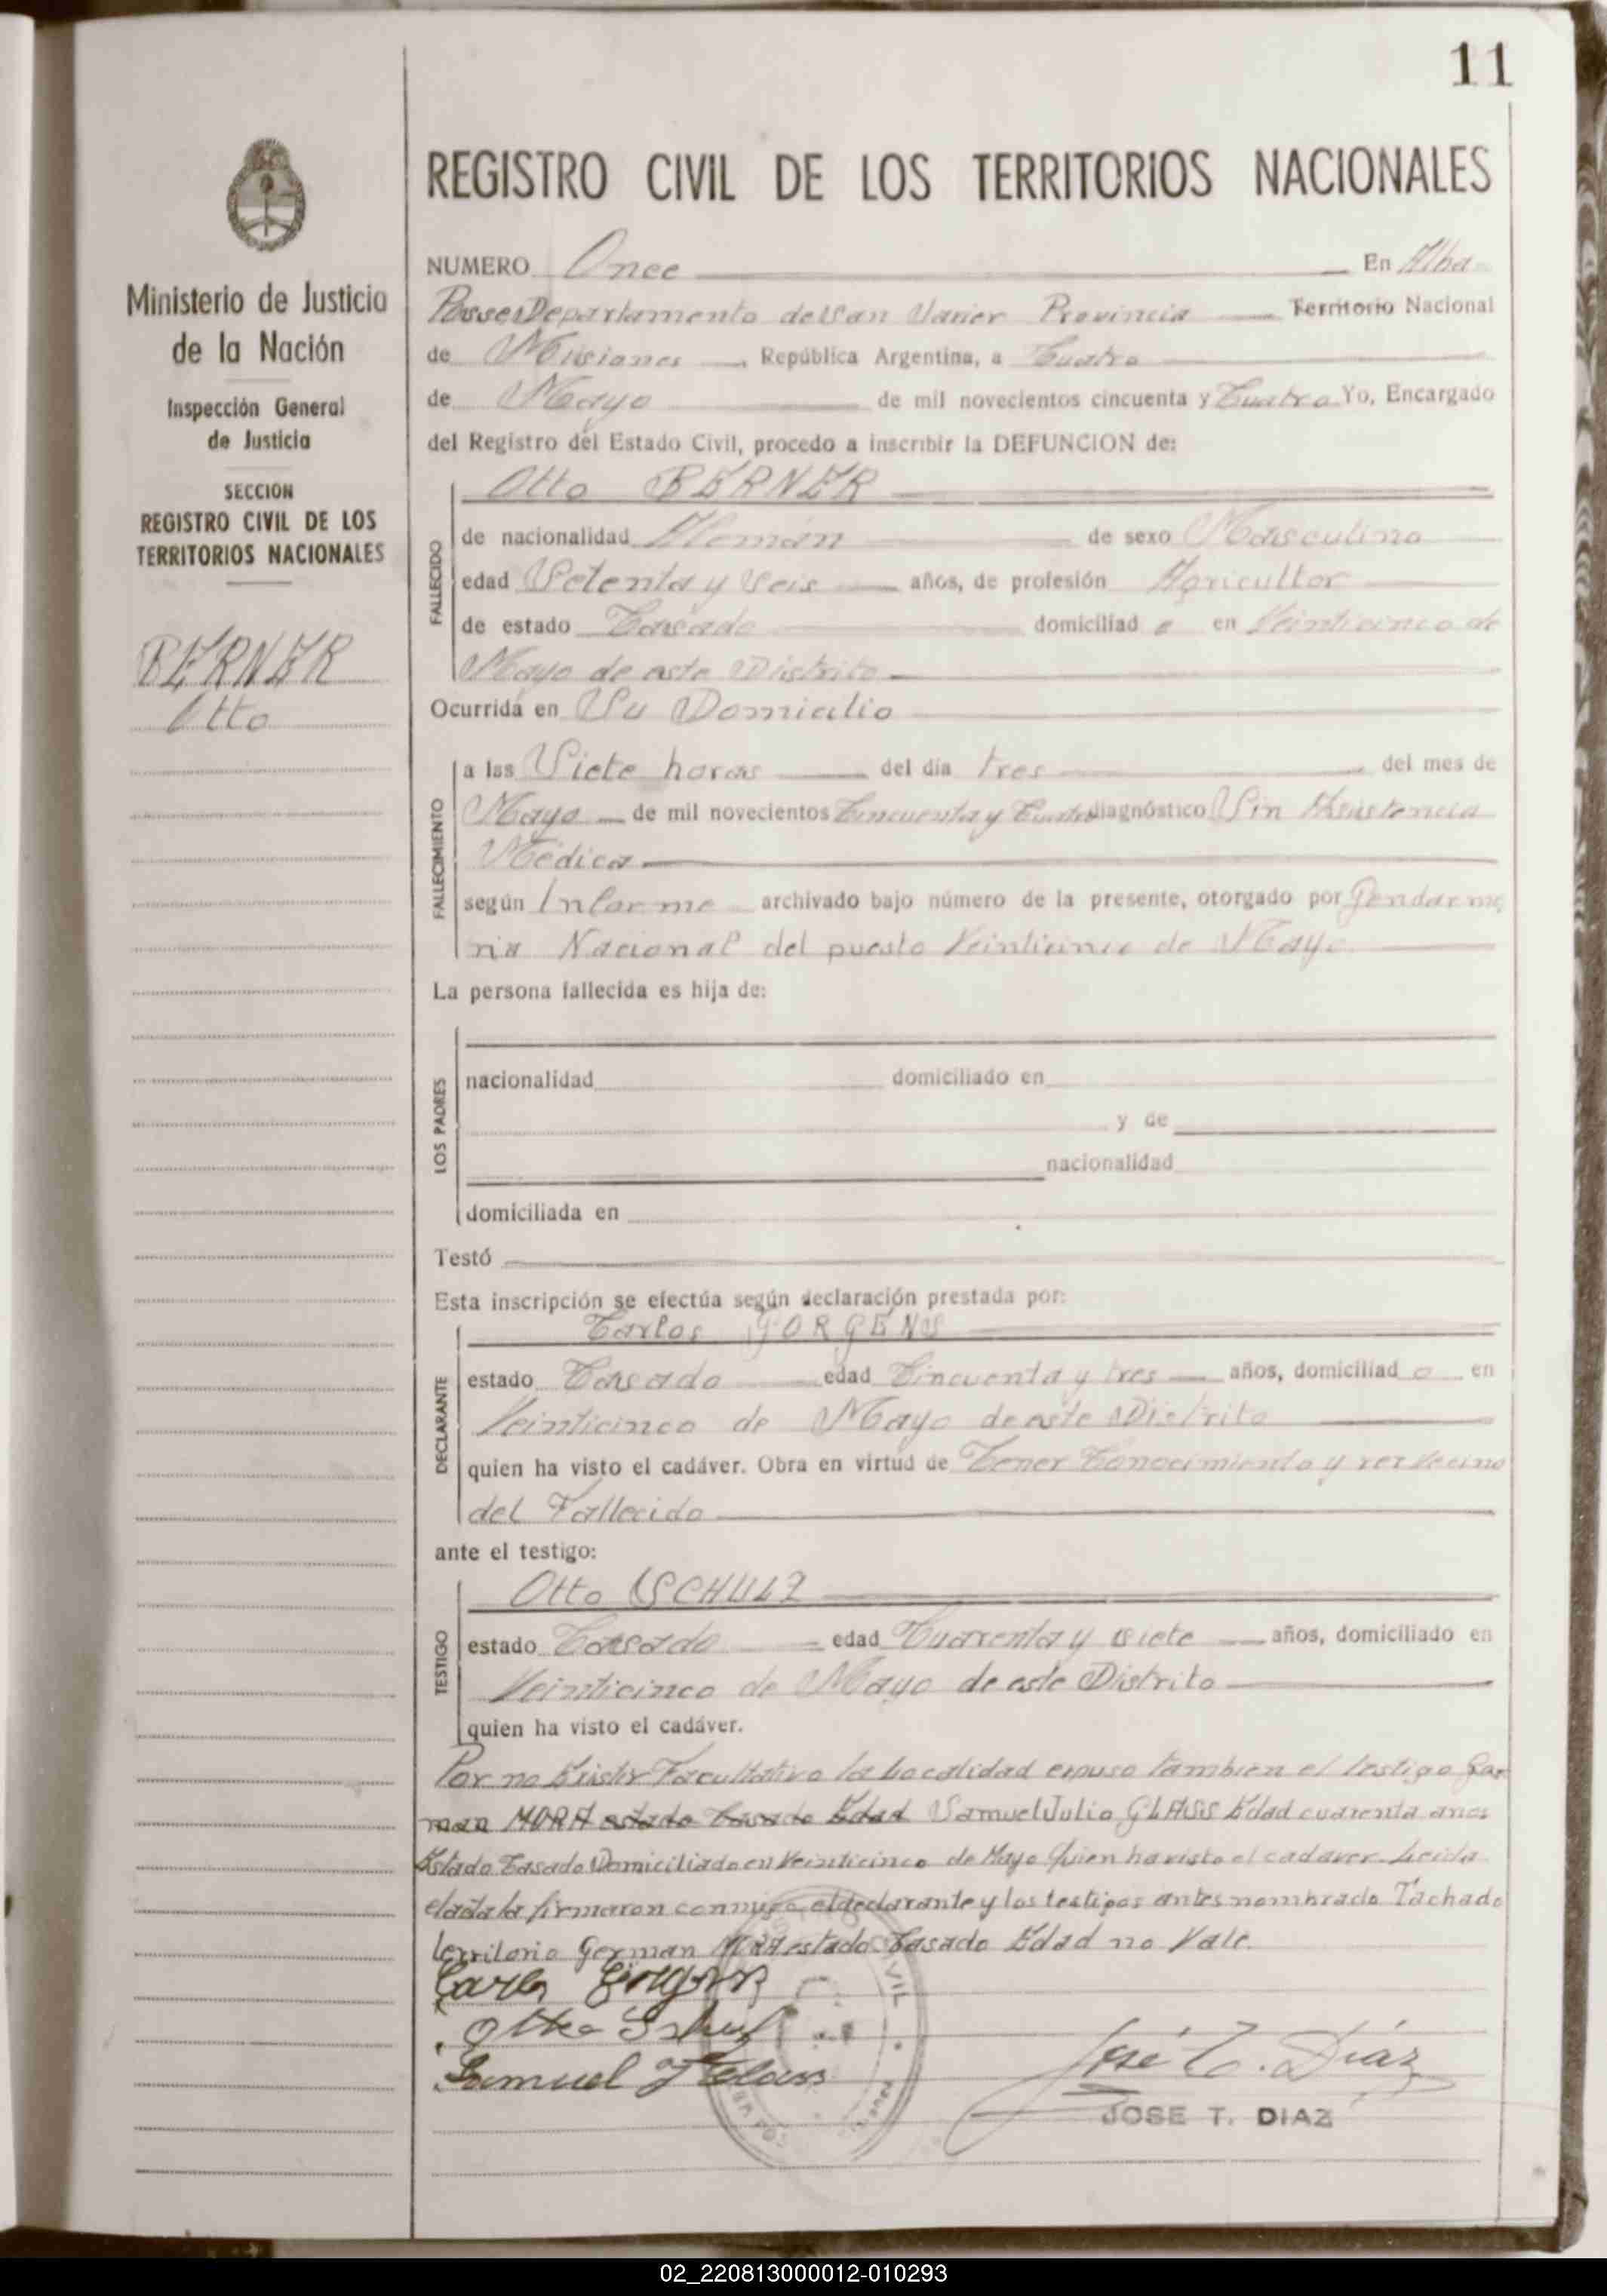 11
REGISTRO CIVIL DE LOS TERRITORIOS NACIONALES
Ministerio de Justicia
de la Nación
Inspección General
de Justicia
SECCION
REGISTRO CIVIL DE LOS
TERRITORIOS NACIONALES
BERNER
Otto
NUMERO Once En Alba
Posse Departamento de San Javier Provincia Territorio Nacional
de Misiones, República Argentina, a Cuatro
de Mayo de mil novecientos cincuenta y Cuatro Yo, Encargado
del Registro del Estado Civil, procedo a inscribir la DEFUNCION de:
Otto BERNER
FALLECIDO
de nacionalidad Alemán de sexo Masculino
edad Setenta y Seis años, de profesión Agricultor
de estado Casado domiciliad o en Veinticinco de
Mayo de este Distrito
Ocurrida en Su Domicilio
FALLECIMIENTO
a las Siete horas del día tres del mes de
Mayo de mil novecientos Cincuenta y Cuatro diagnóstico Sin Asistencia
Médica
según Informe archivado bajo número de la presente, otorgado por Gendarme
ria Nacional del puesto Veinticinco de Mayo
La persona fallecida es hija de:
LOS PADRES
nacionalidad domiciliado en
y de
nacionalidad
domiciliada en
Testó
Esta inscripción se efectúa según declaración prestada por:
Carlos GORGENS
DECLARANTE
estado Casado edad Cincuenta y tres años, domiciliad o en
Veinticinco de Mayo de este Distrito
quien ha visto el cadáver. Obra en virtud de Tener Conocimiento y ser Vecino
del Fallecido
ante el testigo:
Otto SCHULZ
TESTIGO
estado Casado edad Cuarenta y siete años, domiciliado en
Veinticinco de Mayo de este Distrito
quien ha visto el cadáver.
Por no Facultativo la Localidad expuso tambien el testigo Ger
man MORA estado Casado Edad Samuel Julio GLASS Edad cuarenta años
Estado Casado Domiciliado en Veinticinco de Mayo Quien ha visto el cadaver Leida
el acta la firmaron conmigo el declarante y los testigos antes nombrado Tachado
territorio German MORA estado Casado Edad no Vale.
Carlos Görgens
Otto Schulz
Samuel J Glass
José T. Díaz
JOSE T. DIAZ
02_220813000012-010293